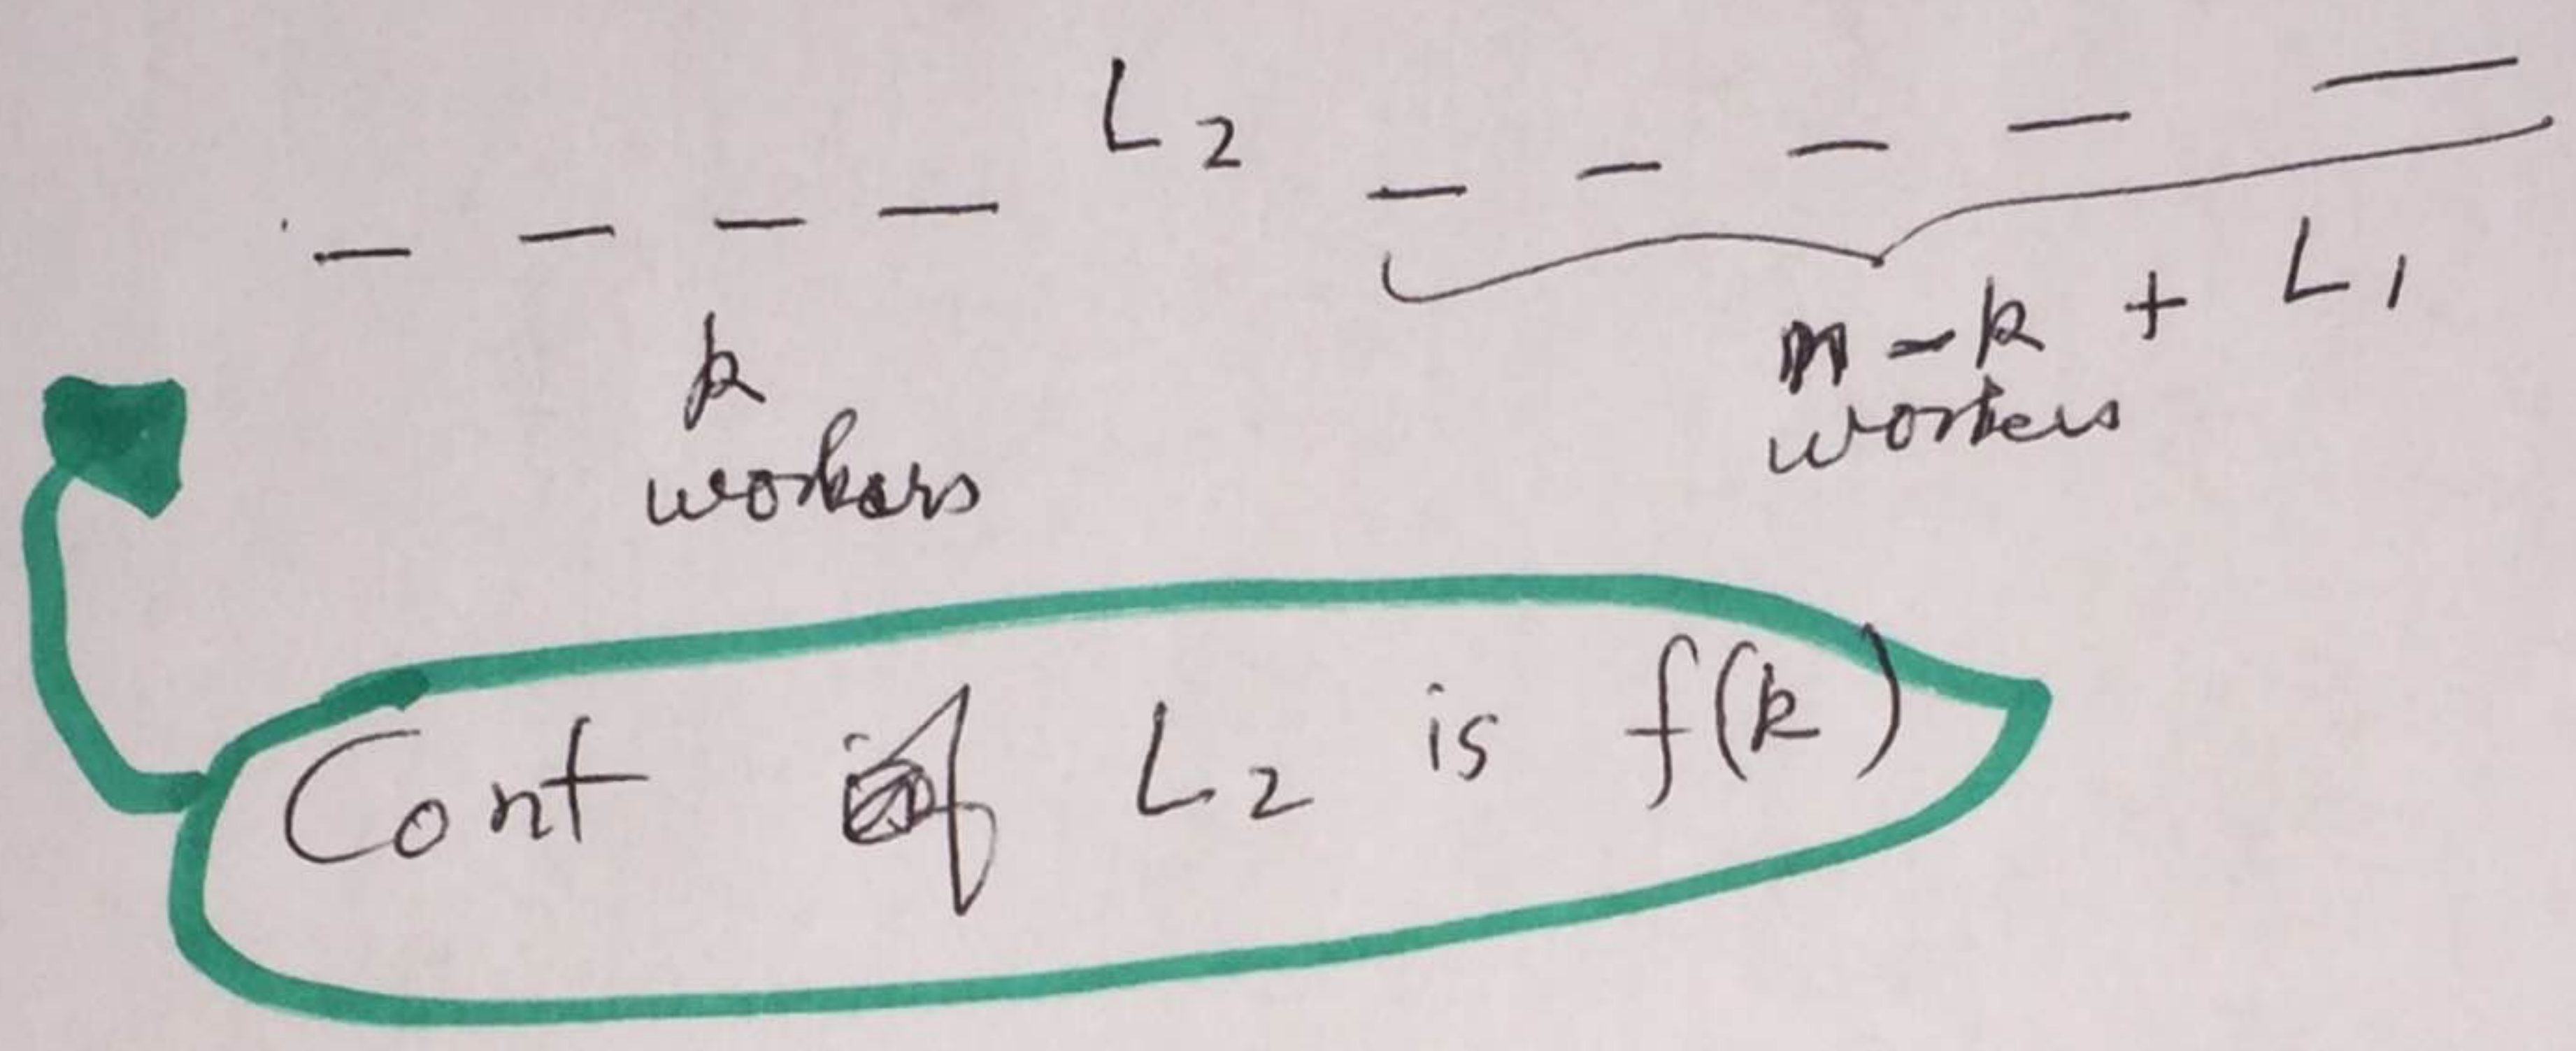 L2
k
workers
n - k + L1
workers
Cont of L2 is f(k)